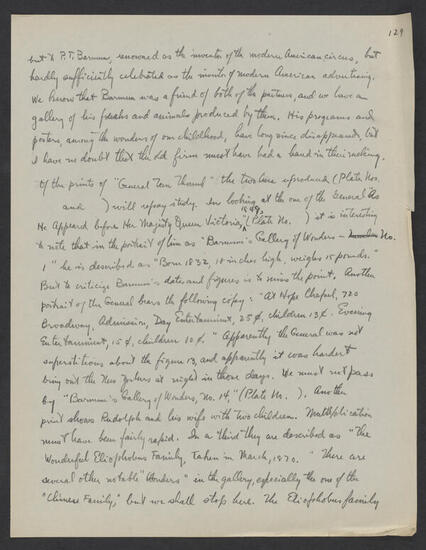 129
but to P.T. Barnum, renowned as the inventor of the modern American circus, but
hardly sufficiently celebrated as the inventor of modern American advertising.
We know that Barnum was a friend of both of the partners, and we have a
gallery of his freaks and animals produced by them. His programs and
posters, among the wonders of our childhood, have long since disappeared, but
I have no doubt that the old firm must have had a hand in their making.
Of the prints of "General Tom Thumb" the two here reproduced (Plate Nos.
and ) will repay study. In looking at the one of the General As
He Appeared before Her Majesty Queen Victoria, 1849, (Plate No. ) it is interesting
to note that in the portrait of him as "Barnum's Gallery of Wonders – No.
1" he is described as "Born 1832, 10 inches high, weighs 15 pounds."
But to criticize Barnum's dates and figures is to miss the point. Another
portrait of the General bears the following copy: "At Hope Chapel, 720
Broadway, Admission, Day Entertainment, 25¢, children 13¢. Evening
Entertainment, 15¢, children 10¢." Apparently the General was not
superstitious about the figure 13, and apparently it was harder to
bring out the New Yorkers at night in those days. We must not pass
by "Barnum's Gallery of Wonders, No. 14," (Plate No. ). Another
print shows Rudolph and his wife with two children. Multiplication
must have been fairly rapid. In a third they are described as "The
Wonderful Eliophobus Family, Taken in March, 1870." There are
several other notable "Wonders" in the gallery, especially the one of the
"Chinese Family," but we shall stop here. The Eliophobus family